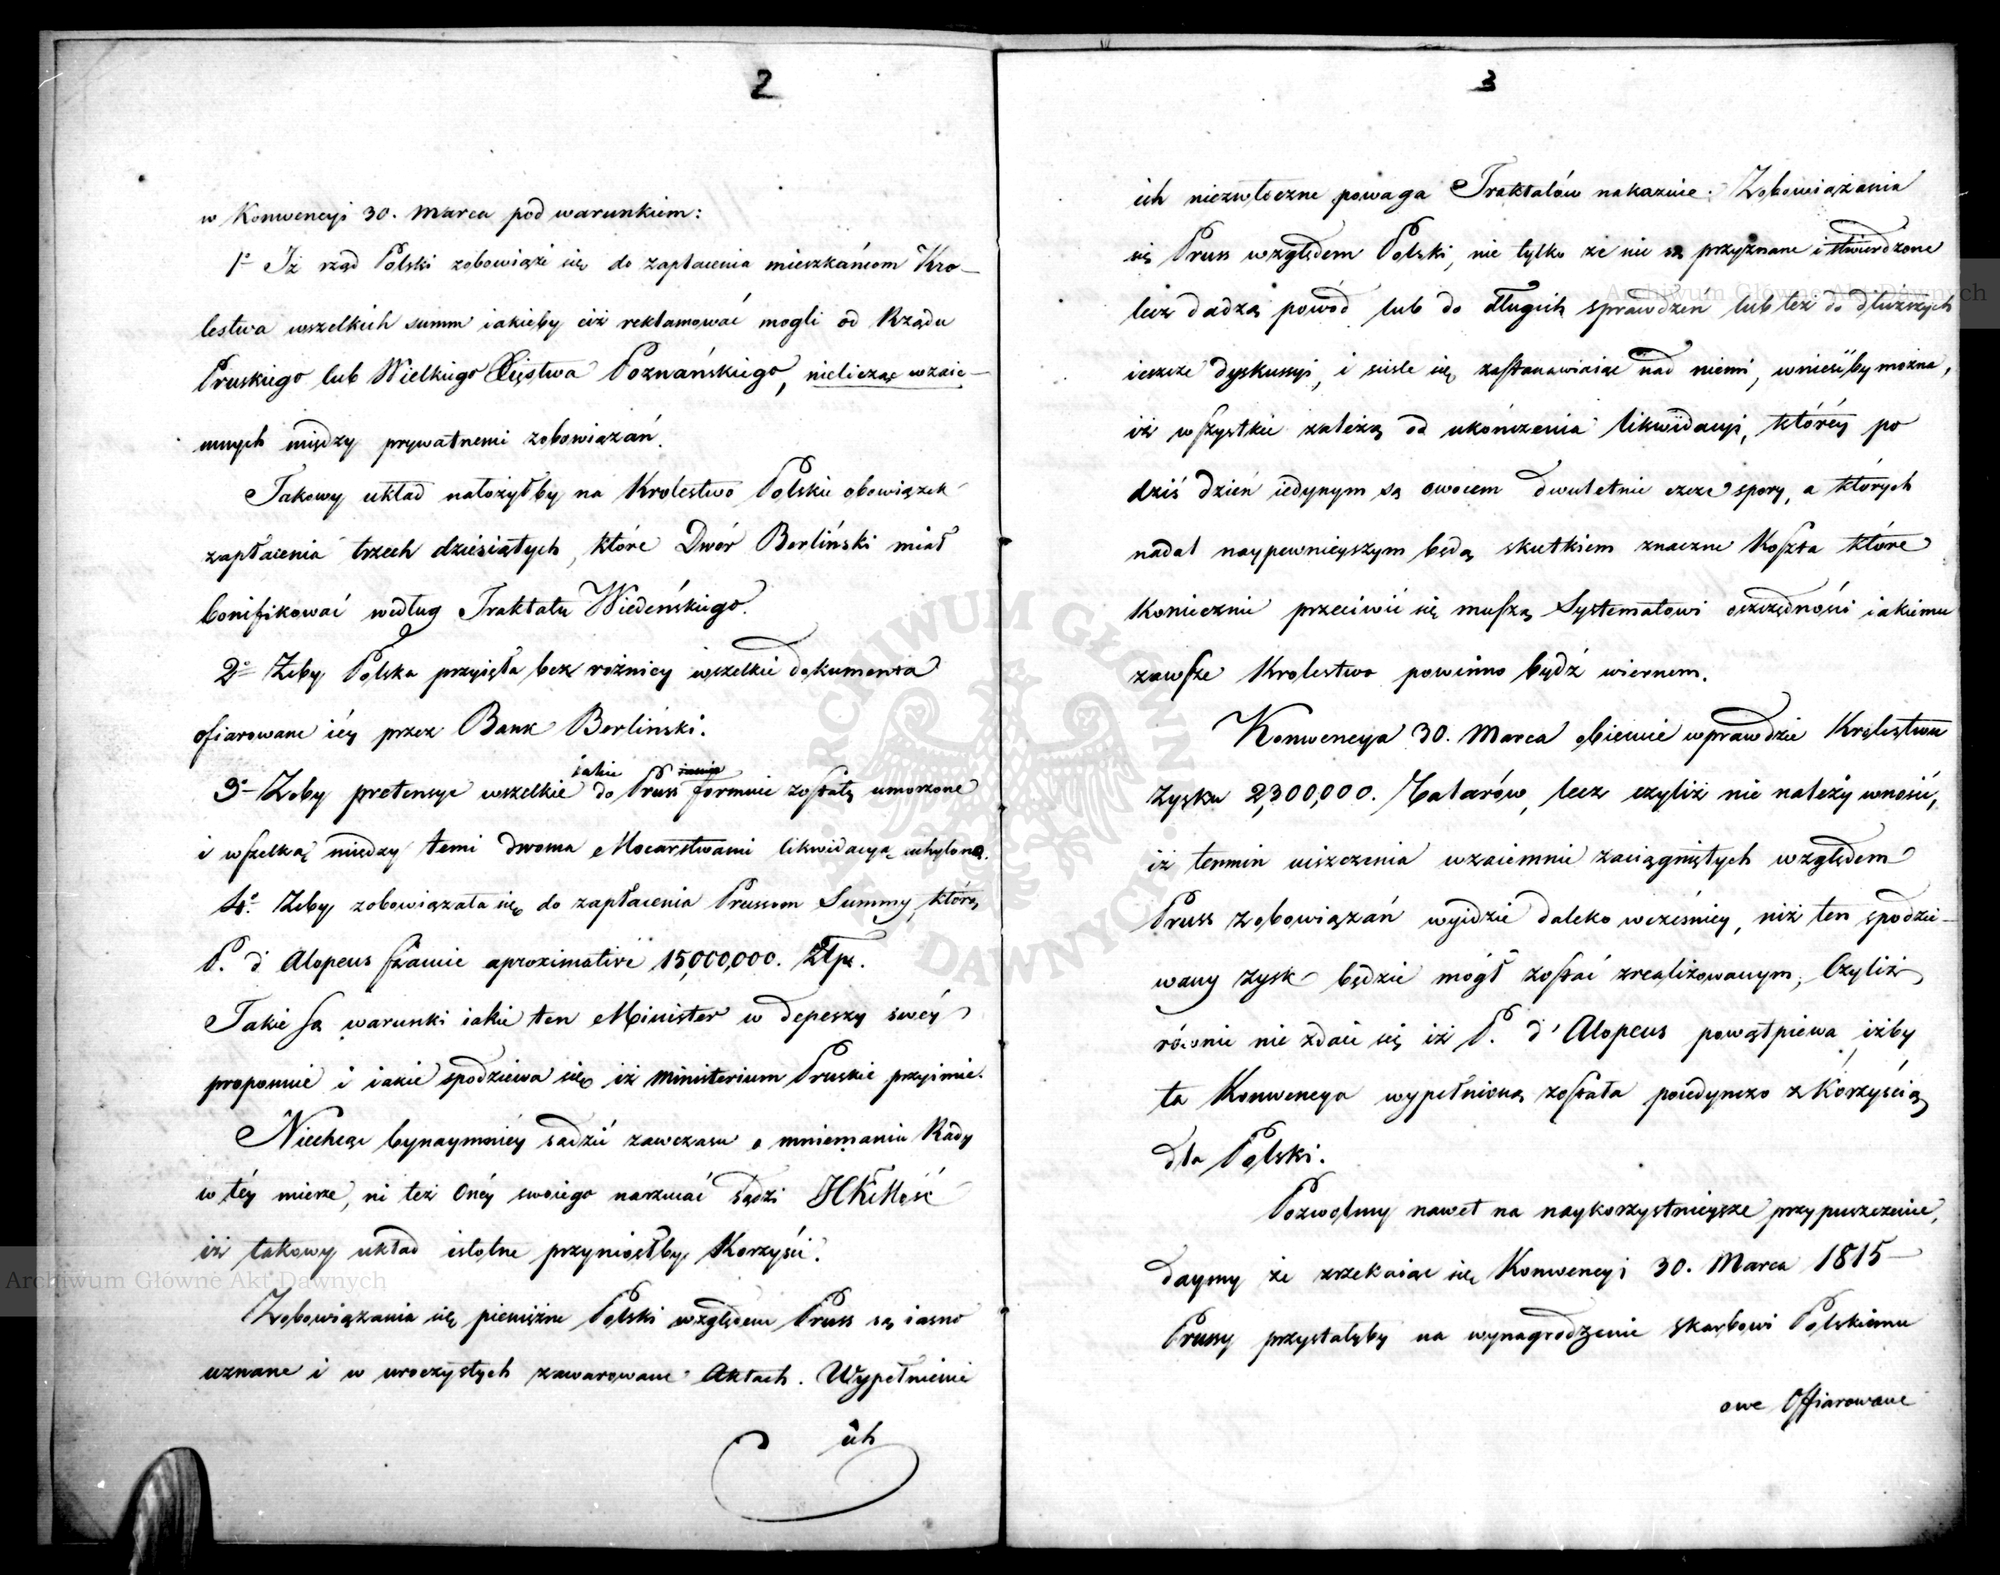 2
w Konwencyi 30. Marca pod warunkiem:
1º Iż rząd Polski zobowiąże się do zapłacenia mieszkańcom Kro-
lestwa wszelkich summ iakieby ciż reklamować mogli od Rządu
Pruskiego lub Wielkiego Xięstwa Poznańskiego, nielicząc wzaie-
mnych między prywatnemi zobowiązań.
Takowy układ nałożyłby na Krolestwo Polskie obowiązek
zapłacenia trzech dziesiątych, które Dwór Berliński miał
bonifikować według Traktatu Wiedeńskiego.
2º Żeby Polska przyięła bez rożnicy wszelkie dokumenta
ofiarowane iéy przez Bank Berliński.
3º Żeby pretensye wszelkie iakie do Pruss formuie zostały umorzone
i wszelką między temi dwoma Mocarstwami likwidacyą uchylono.
4º Żeby zobowiązała się do zapłacenia Prussom Summy, którą
P. d'Alopeus szacuie aproximative 15,000,000. Złp.
Takie są warunki iakie ten Minister w depeszy swéy
proponuie i iakie spodziewa się iż Ministerium Pruskie przyimie.
Niechcąc bynaymniéy sądzić zawczasu o mniemaniu Rady
w téy mierze, ni też Onéy swoiego narzucać sądzi
iż takowy układ istotne przyniosłby Korzyści.
Zobowiązania się pieniężne Polski względem Pruss są iasno
uznane i w uroczystych zawarowane Aktach. Wypełnienie
ich
3
ich niezwłoczne powaga Traktatów nakazuie. Zobowiązania
się Pruss względem Polski, nie tylko że nie są przyznane i stwierdzone
lecz dadzą powód lub do długich sprawdzeń lub też do dłuższych
ieszcze dyskussyi, i ściśle się zastanawiaiąc nad niemi, wnieśćby można,
iż wszystkie zależą od ukończenia likwidacyi, któréy po
dziś dzień iedynym są owocem dwuletnie czcze spory, a których
nadal naypewnieyszym będą skutkiem znaczne Koszta które
Koniecznie przeciwić się muszą Systematowi oszczędności iakiemu
zawsze Krolestwo powinno bydź wiernem.
Konwencya 30. Marca obiecuie wprawdzie Krolestwu
Zysku 2,300,000. Talarów, lecz czyliż nie należy wnosić,
iż termin uiszczenia wzaiemnie zaciągniętych względem
Pruss zobowiązań wyidzie daleko wcześniey, niż ten spodzie-
wany zysk będzie mógł zostać zrealizowanym; Czyliż
równie nie zdaie się iż P. d'Alopeus powątpiewa iżby
ta Konwencya wypełnioną została poiedynczo z Korzyścią
dla Polski.
Pozwolmy nawet na naykorzystnieysze przypuszczenie,
daymy że zrzekaiąc się Konwencyi 30. Marca 1815
Prussy przystałyby na wynagrodzenie skarbowi Polskiemu
owe Offiarowane
Archiwum Główne Akt Dawnych
Archiwum Główne Akt Dawnych
ARCHIWUM GŁÓWNE AKT DAWNYCH